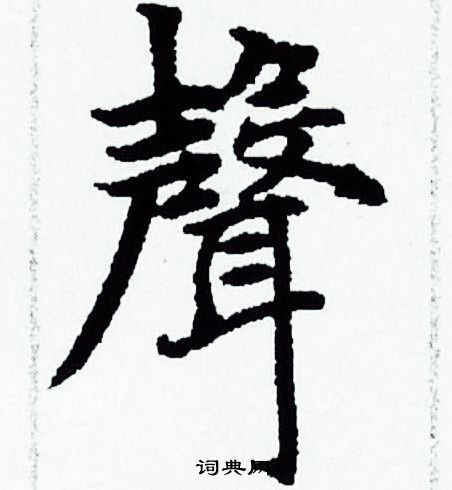 聲
词典网